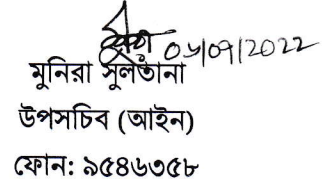 ০৬/০৭/2022
মুনিরা সুলতানা
উপসচিব (আইন)
ফোন: ৯৫৪৬৩৫৮